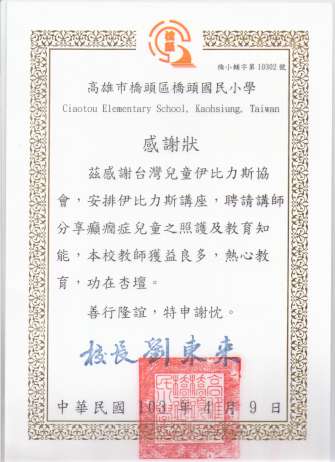 橋小輔字第10302號
高雄市橋頭區橋頭國民小學
Ciaotou Elementary School, Kaohsiung, Taiwan
感謝狀
茲感謝台灣兒童伊比力斯協
會，安排伊比力斯講座，聘請講師
分享癲癇症兒童之照護及教育知
能，本校教師獲益良多，熱心教
育，功在杏壇。
善行隆誼，特申謝忱。
校長劉東來
中華民國 103 年 4 月 9 日